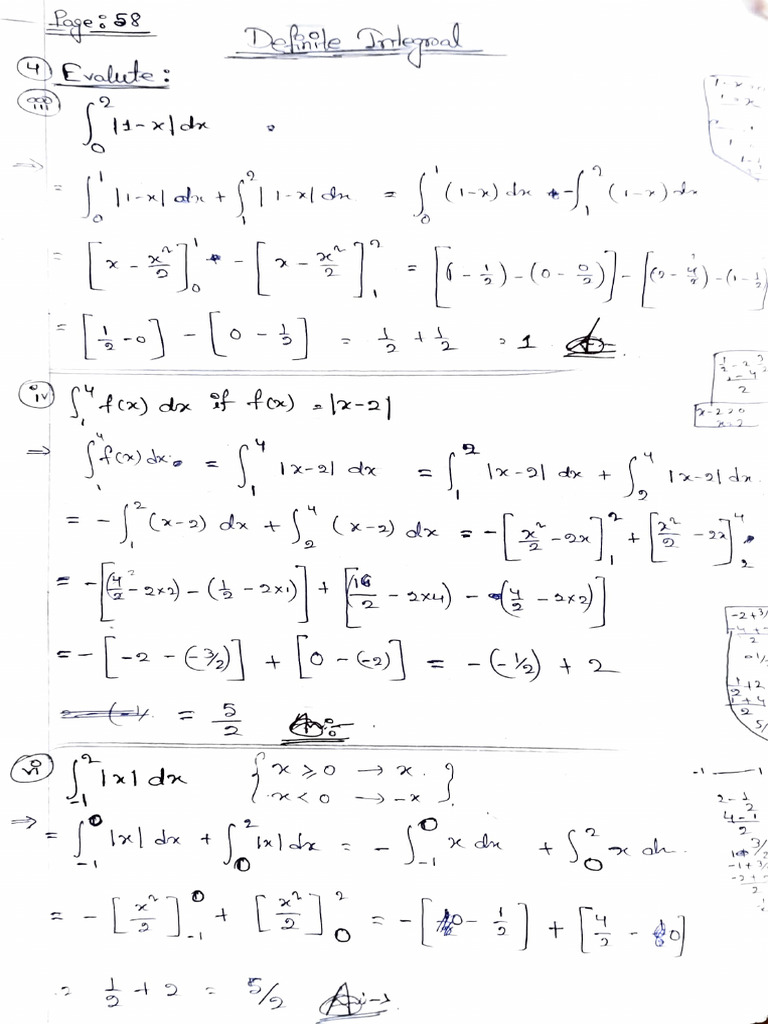 Page: 58
Definite Integral
④ Evalute:
iii) ∫₀² |1-x| dx
⇒
= ∫₀¹ |1-x| dx + ∫₁² |1-x| dx = ∫₀¹ (1-x) dx - ∫₁² (1-x) dx
= [x - x²/2]₀¹ - [x - x²/2]₁² = [(1 - 1/2) - (0 - 0/2)] - [(2 - 4/2) - (1 - 1/2)
= [1/2 - 0] - [0 - 1/2] = 1/2 + 1/2 = 1
iv) ∫₁⁴ f(x) dx if f(x) = |x-2|
⇒ ∫₁⁴ f(x) dx = ∫₁⁴ |x-2| dx = ∫₁² |x-2| dx + ∫₂⁴ |x-2| dx
= - ∫₁² (x-2) dx + ∫₂⁴ (x-2) dx = - [x²/2 - 2x]₁² + [x²/2 - 2x]₂⁴
= - [(4/2 - 2×2) - (1/2 - 2×1)] + [(16/2 - 2×4) - (4/2 - 2×2)]
= - [-2 - (-3/2)] + [0 - (-2)] = - (-1/2) + 2
= 5/2 Ans
vi) ∫₋₁² |x| dx { x ≥ 0 → x.
x < 0 → -x }
⇒ = ∫₋₁⁰ |x| dx + ∫₀² |x| dx = - ∫₋₁⁰ x dx + ∫₀² x dx.
= - [x²/2]₋₁⁰ + [x²/2]₀² = - [0 - 1/2] + [4/2 - 0]
= 1/2 + 2 = 5/2